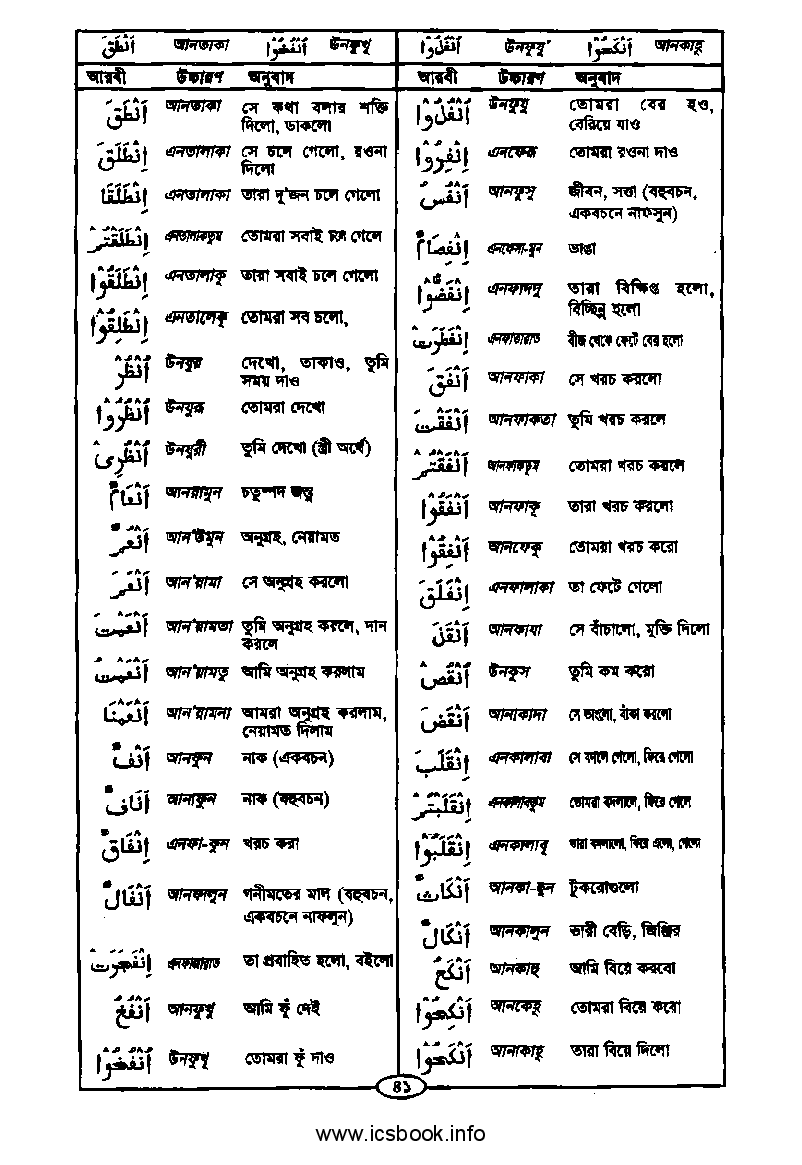 اَنْطَقَ আনতাকা اُنْفُخُوْا উনফুখু
আরবী উচ্চারণ অনুবাদ
اَنْطَقَ আনতাকা সে কথা বলার শক্তি
দিলো, ডাকলো
اِنْطَلَقَ এনতালাকা সে চলে গেলো, রওনা
দিলো
اِنْطَلَقَا এনতালাকা তারা দু'জন চলে গেলো
اِنْطَلَقْتُمْ এনতালাকতুম তোমরা সবাই চলে গেলে
اِنْطَلَقُوْا এনতালাকু তারা সবাই চলে গেলো
اِنْطَلِقُوْا এনতালেকু তোমরা সব চলো,
اُنْظُرْ উনযুর দেখো, তাকাও, তুমি
সময় দাও
اُنْظُرُوْا উনযুরু তোমরা দেখো
اُنْظُرِىْ উনযুরী তুমি দেখো (স্ত্রী অর্থে)
اَنْعَامٌ আনয়ামুন চতুষ্পদ জন্তু
اَنْعُمٌ আন'উমুন অনুগ্রহ, নেয়ামত
اَنْعَمَ আন'য়ামা সে অনুগ্রহ করলো
اَنْعَمْتَ আন'য়ামতা তুমি অনুগ্রহ করলে, দান
করলে
اَنْعَمْتُ আন'য়ামতু আমি অনুগ্রহ করলাম
اَنْعَمْنَا আন'য়ামনা আমরা অনুগ্রহ করলাম,
নেয়ামত দিলাম
اَنْفٌ আনফুন নাক (একবচন)
اٰنَافٌ আনাফুন নাক (বহুবচন)
اِنْفَاقٌ এনফা-কুন খরচ করা
اَنْفَالٌ আনফালুন গনীমতের মাল (বহুবচন,
একবচনে নাফলুন)
اِنْفَجَرَتْ এনফাজারাত তা প্রবাহিত হলো, বইলো
اَنْفُخُ আনফুখু আমি ফুঁ দেই
اُنْفُخُوْا উনফুখু তোমরা ফুঁ দাও
اُنْفُذُوْا উনফুযু' اَنْكَحُوْا আনকাহু
আরবী উচ্চারণ অনুবাদ
اُنْفُذُوْا উনফুযু তোমরা বের হও,
বেরিয়ে যাও
اِنْفِرُوْا এনফেরু তোমরা রওনা দাও
اَنْفُسٌ আনফুসু জীবন, সত্তা (বহুবচন,
একবচনে নাফসুন)
اِنْفِصَامٌ এনফেসা-মুন ভাঙা
اِنْفَضُّوْا এনফাদদু তারা বিক্ষিপ্ত হলো,
বিচ্ছিন্ন হলো
اِنْفَطَرَتْ এনফাতারাত বীজ থেকে ফেটে বের হলো
اَنْفَقَ আনফাকা সে খরচ করলো
اَنْفَقْتَ আনফাকতা তুমি খরচ করলে
اَنْفَقْتُمْ আনফাকতুম তোমরা খরচ করলে
اَنْفَقُوْا আনফাকু তারা খরচ করলো
اَنْفِقُوْا আনফেকু তোমরা খরচ করো
اِنْفَلَقَ এনফালাকা তা ফেটে গেলো
اَنْقَذَ আনকাযা সে বাঁচালো, মুক্তি দিলো
اُنْقُصْ উনকুস তুমি কম করো
اَنْقَضَ আনাকাদা সে ভাংলো, বাঁকা করলো
اِنْقَلَبَ এনকালাবা সে বদলে গেলো, ফিরে গেলো
اِنْقَلَبْتُمْ এনকালাবতুম তোমরা বদলালে, ফিরে গেলে
اِنْقَلَبُوْا এনকালাবু তারা বদলালো, ফিরে এলো, গেলো
اَنْكَاثٌ আনকা-ছুন টুকরোগুলো
اَنْكَالٌ আনকালুন ভারী বেড়ি, জিঞ্জির
اَنْكِحُ আনকাহু আমি বিয়ে করবো
اَنْكِحُوْا আনকেহু তোমরা বিয়ে করো
اَنْكَحُوْا আনাকাহু তারা বিয়ে দিলো
৪১
www.icsbook.info